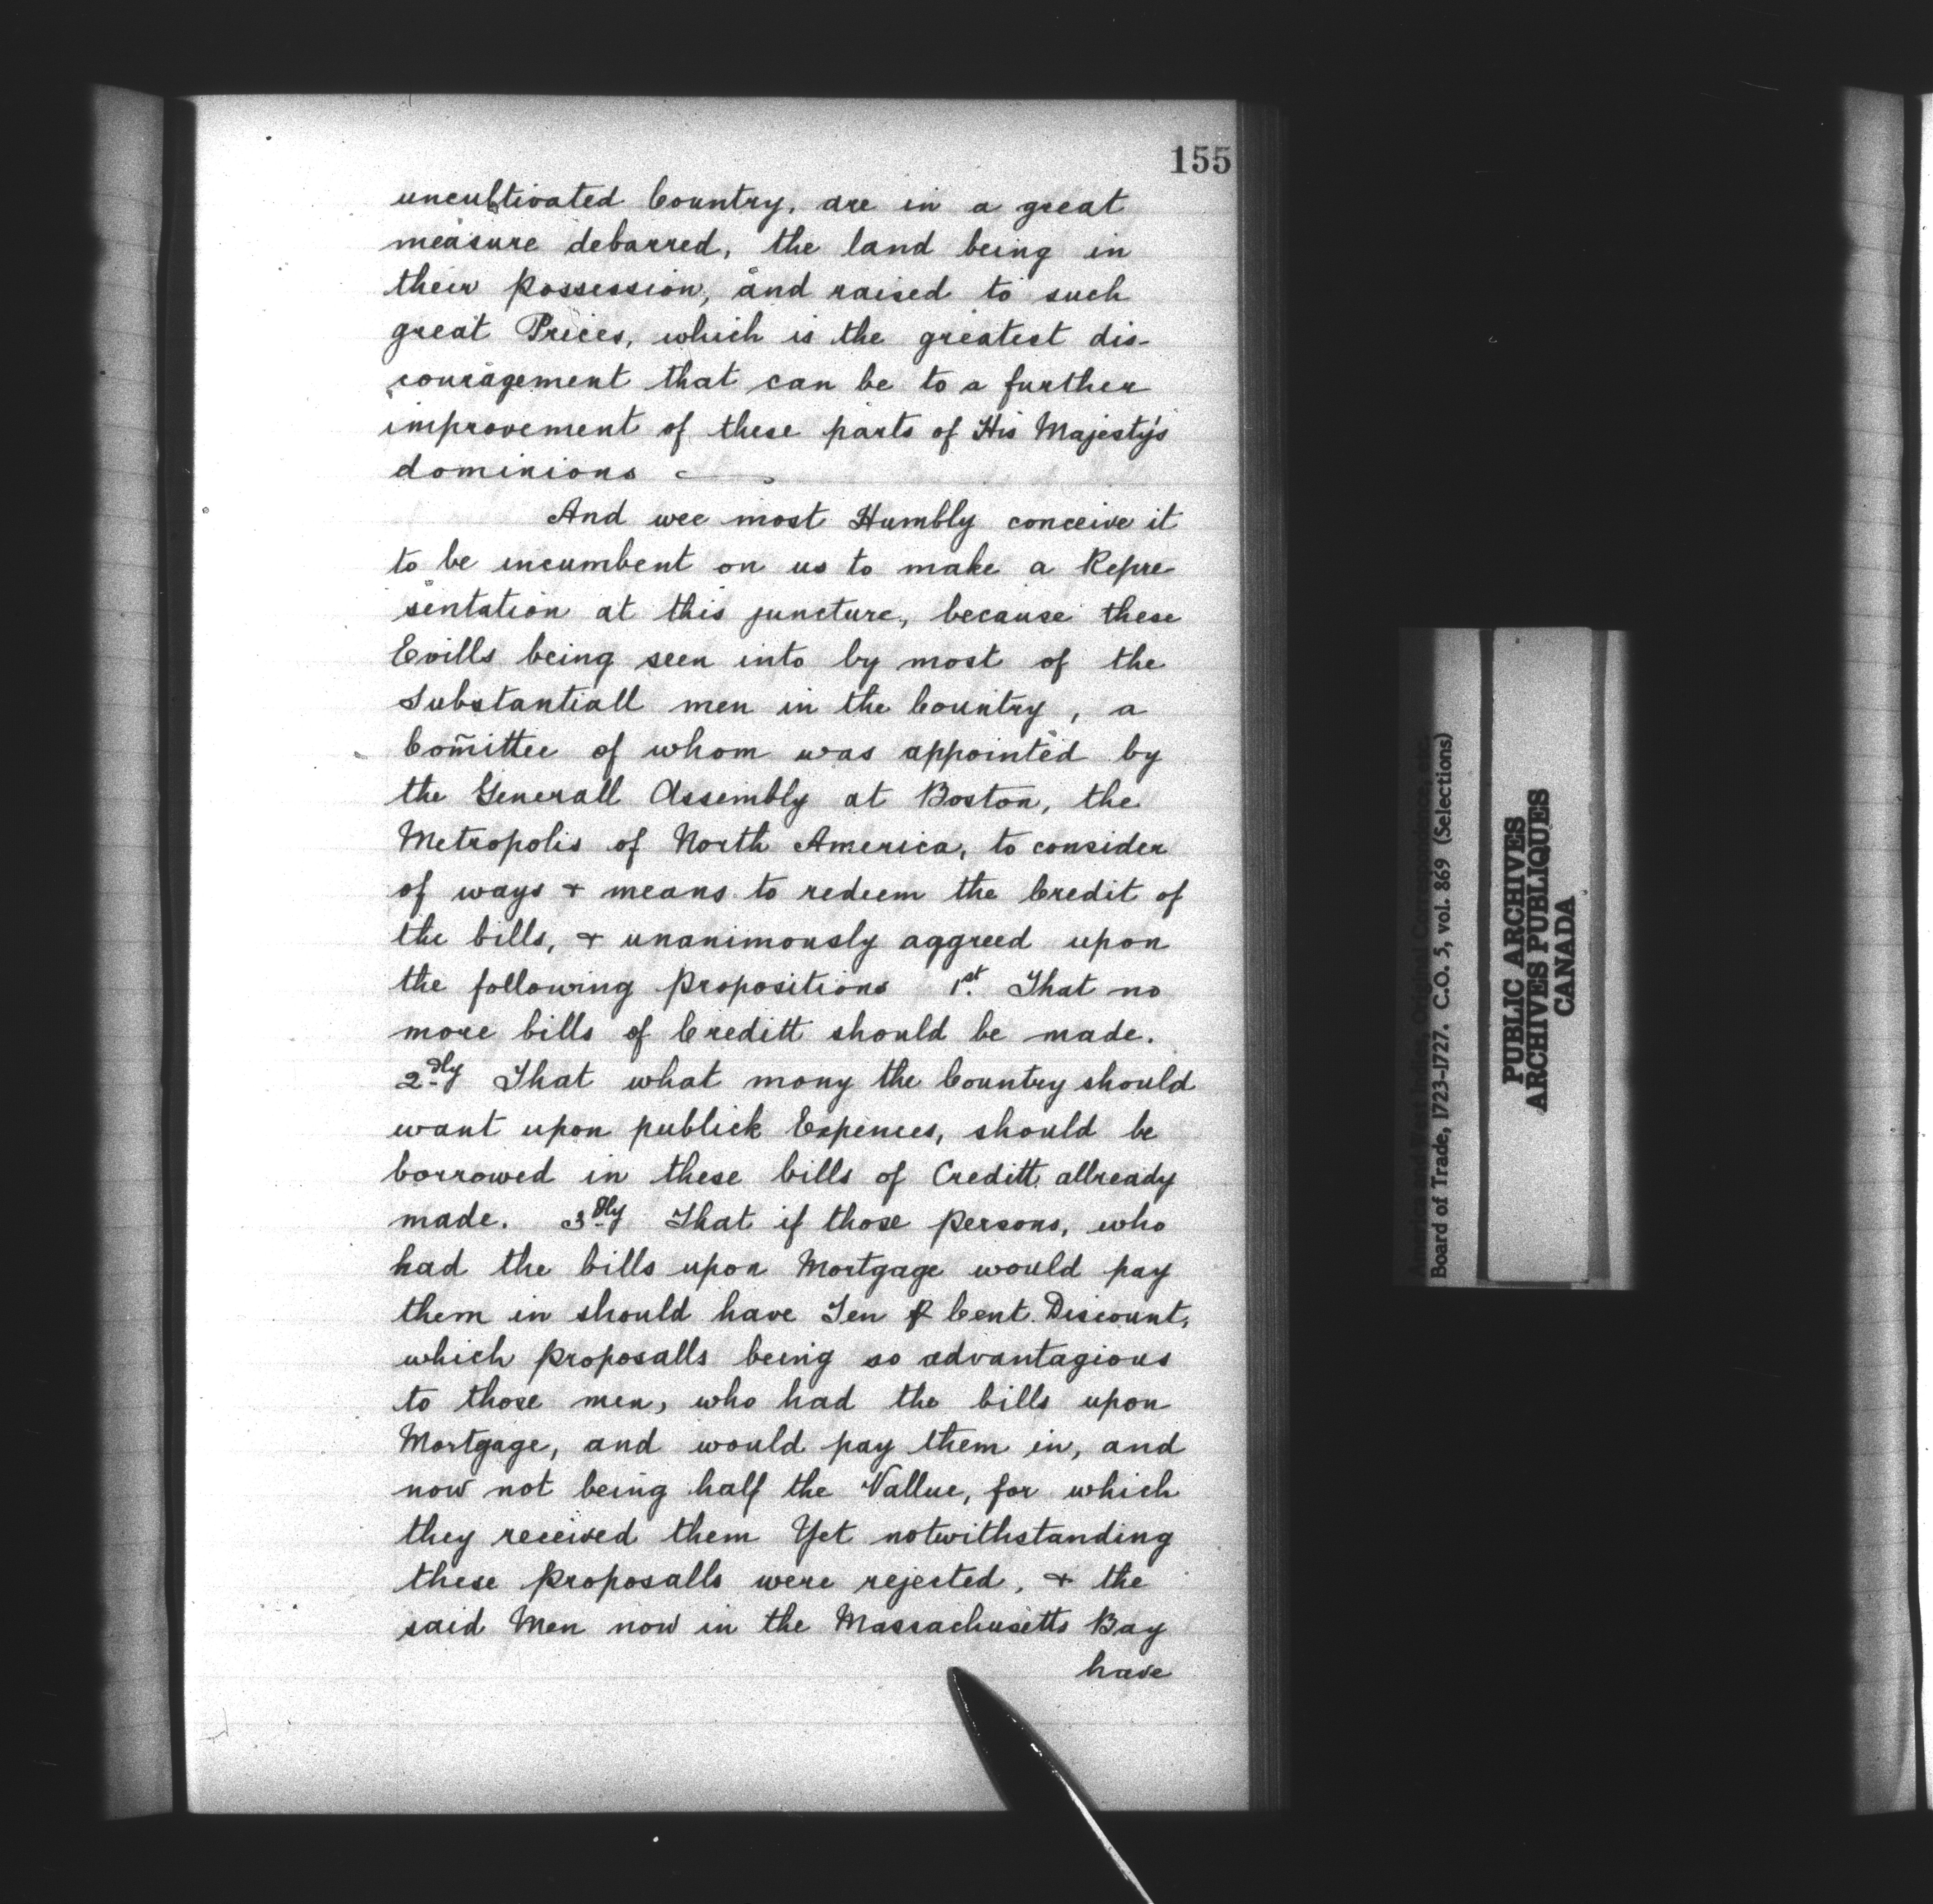 155
uncultivated Country, are in a great
measure debarred, the land being in
their possession, and raised to such
great Prices, which is the greatest dis-
couragement that can be to a further
improvement of these parts of His Majesty's
dominions
And wee most Humbly conceive it
to be incumbent on us to make a Repre
sentation at this juncture, because these
Evills being seen into by most of the
Substantiall men in the Country, a
Com̃ittee of whom was appointed by
the Generall Assembly at Boston, the
Metropolis of North America, to consider
of ways & means to redeem the Credit of
the bills, & unanimously aggreed upon
the following propositions 1st. That no
more bills of Creditt should be made.
2dly That what mony the Country should
want upon publick Expences, should be
borrowed in these bills of Creditt allready
made. 3dly That if those persons, who
had the bills upon Mortgage would pay
them in should have Ten ⅌ Cent Discount,
which proposalls being so advantagious
to those men, who had the bills upon
Mortgage, and would pay them in, and
now not being half the Vallue, for which
they received them Yet notwithstanding
these proposalls were rejected, & the
said Men now in the Massachusetts Bay
have
America and West Indies, Original Correspondence, etc.
Board of Trade, 1723-1727. C.O. 5, vol. 869 (Selections)
PUBLIC ARCHIVES
ARCHIVES PUBLIQUES
CANADA